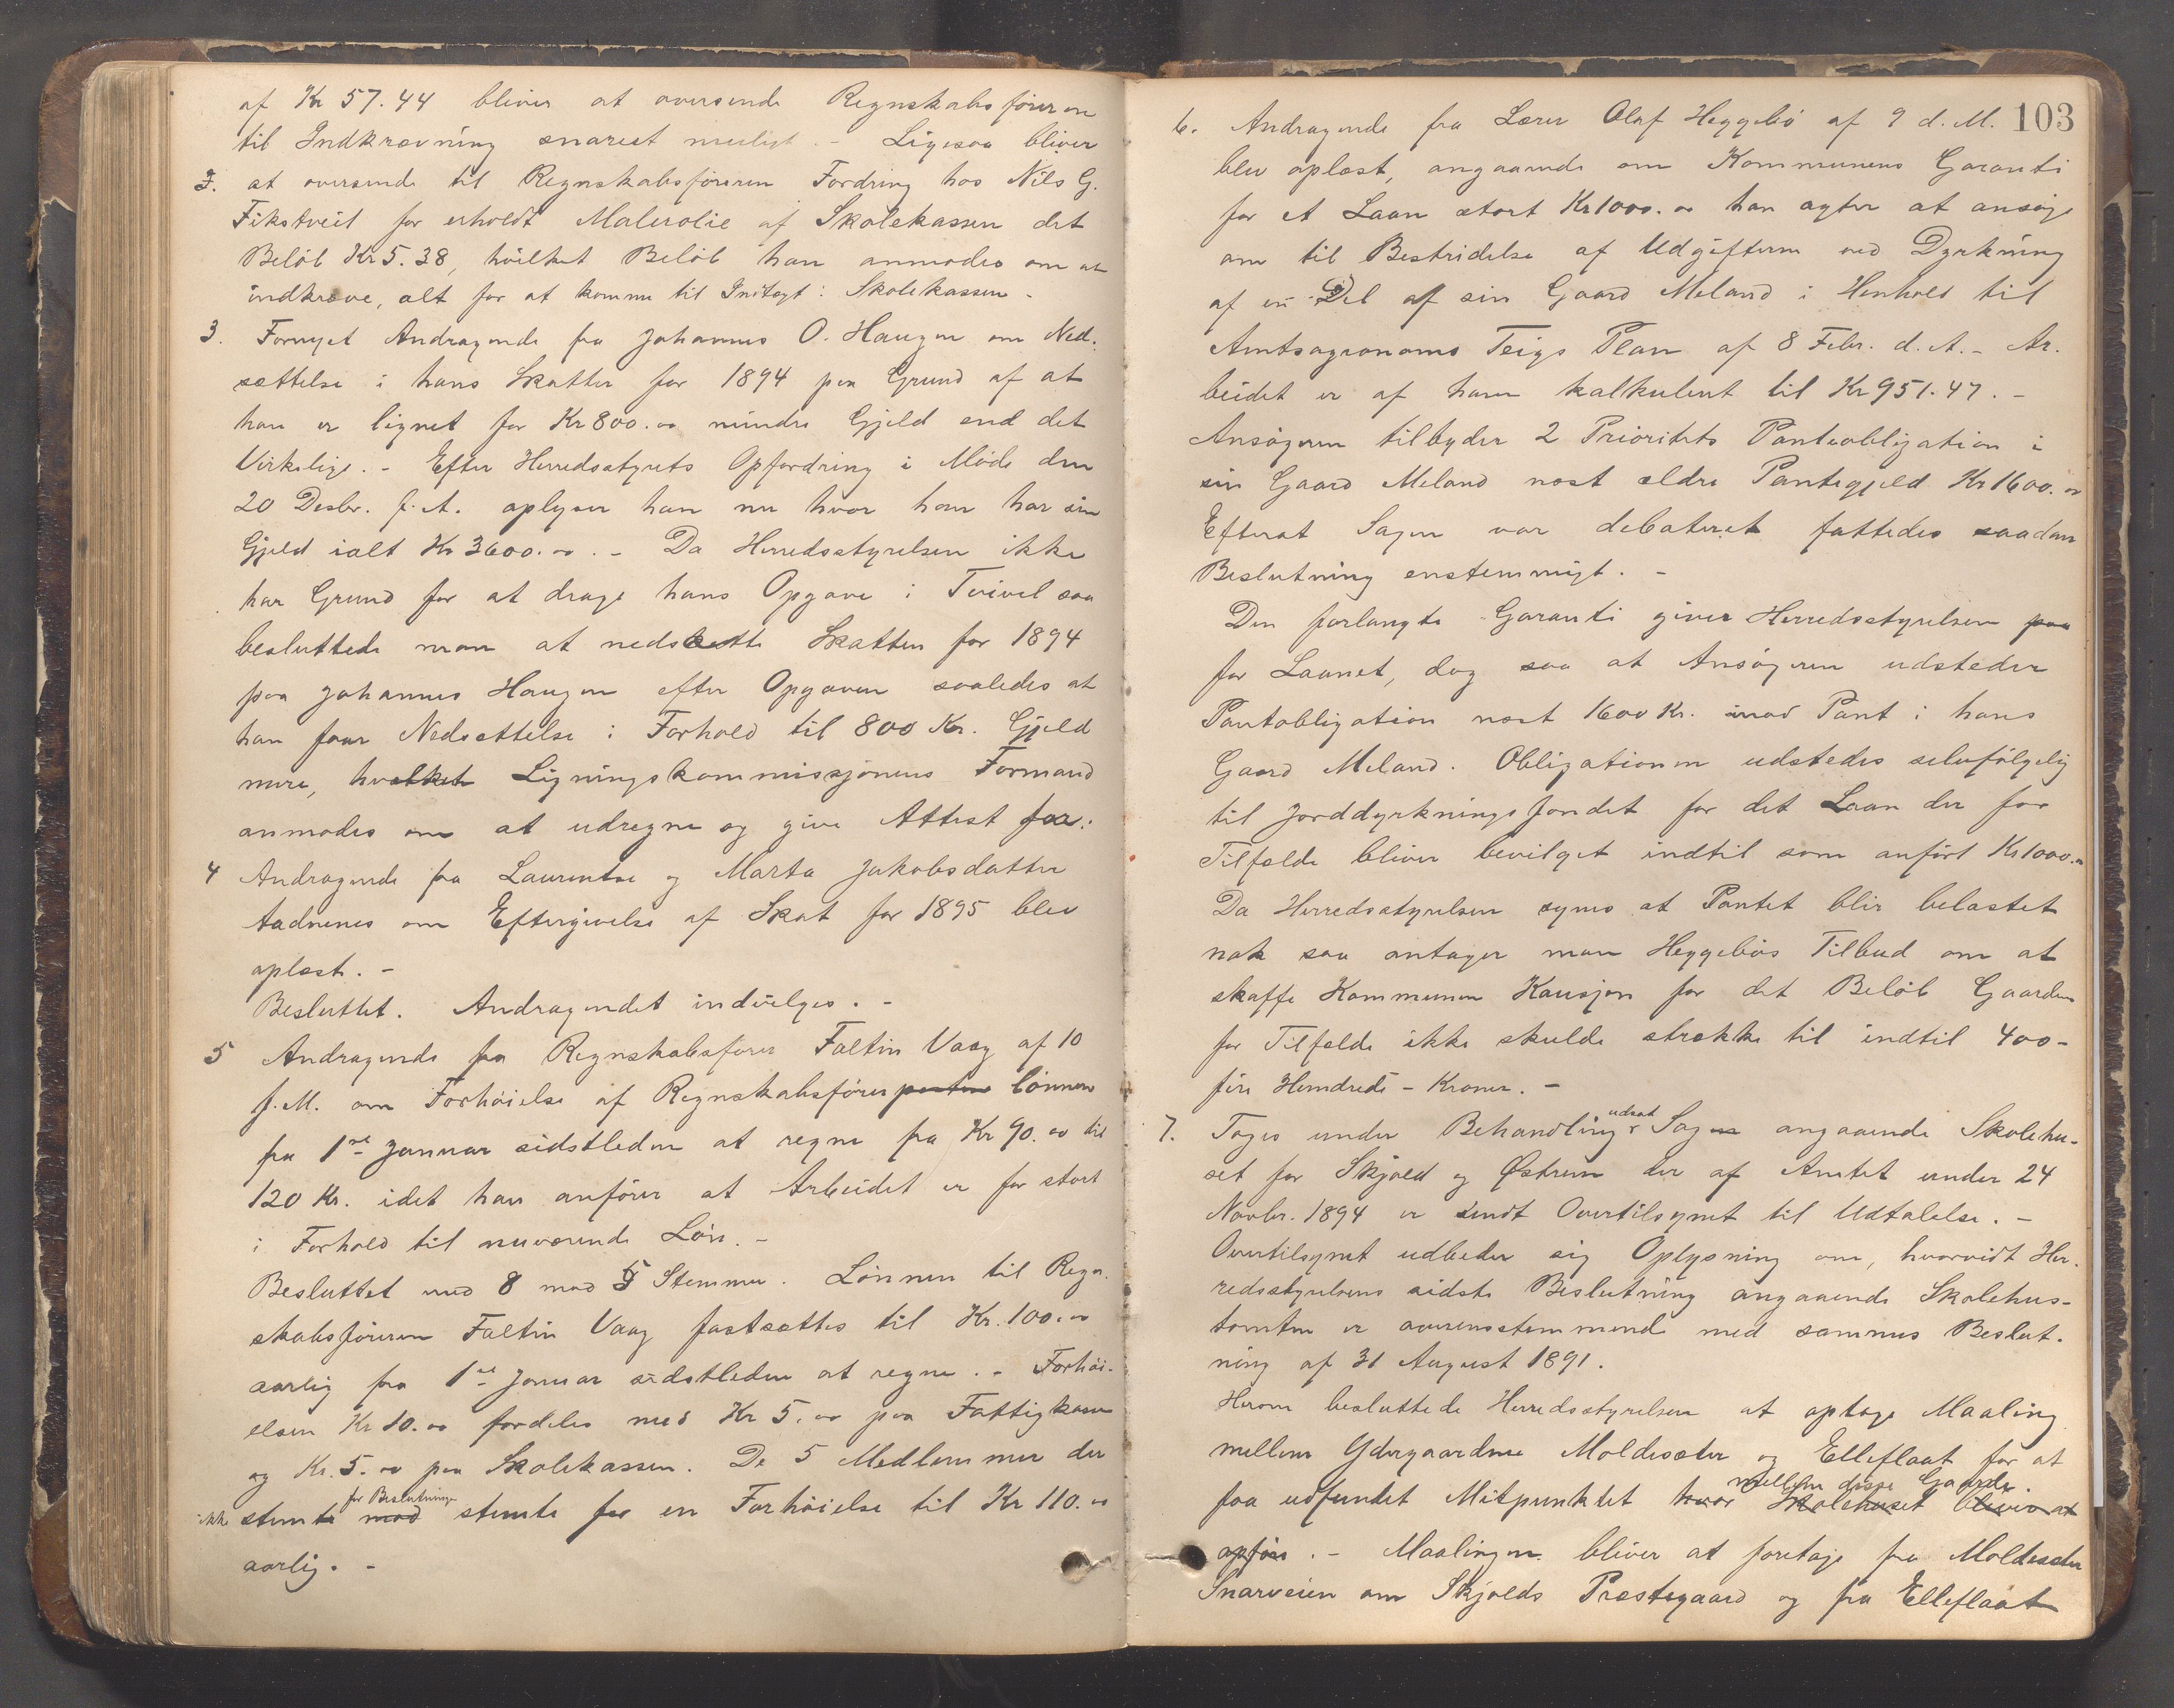 af Kr 57.44 bliver at oversende Regnskabsføreren
til Indkrævning snarest muligt. - Ligesaa bliver
2. at oversende til Regnskabsføreren Fordring hos Nils G.
Fikstveit for erholdt Malerolie af Skolekassen det
Beløb Kr 5.38, hvilket Beløb han anmodes om at
indkræve, alt for at komme til Indtægt i Skolekassen -
3. Fornyet Andragende fra Johannes O. Haugen om Ned-
sættelse i hans Skatter for 1894 paa Grund af at
han er lignet for Kr 800.00 mindre Gjeld end det
Virkelige. - Efter Herredsstyrets Opfordring i Møde den
20 Desbr. f. A. oplyser han nu hvor han har sin
Gjeld ialt Kr 3600.00. - Da Herredsstyrelsen ikke
har Grund for at drage hans Opgave i Tvivel saa
besluttede man at nedsætte Skatten for 1894
paa Johannes Haugen efter Opgaven saaledes at
han faar Nedsættelse i Forhold til 800 Kr. Gjeld
mere, hvilket Ligningskommissjonens Formand
anmodes om at udregne og give Attest for.
4 Andragende fra Laurentse og Marta Jakobsdatter
Aadnenes om Eftergivelse af Skat for 1895 blev
oplæst. -
Besluttet. Andragendet indvilges. -
5 Andragende fra Regnskabsfører Faltin Vaag af 10
f. M. om Forhøielse af Regnskabsførerposten lønnen
fra 1ste Januar sidstleden at regne fra Kr 90.00 til
120 Kr. idet han anfører at Arbeidet er for stort
i Forhold til nuværende Løn. -
Besluttet med 8 mod 5 Stemmer. Lønnen til Regn-
skabsføreren Faltin Vaag fastsættes til Kr. 100.00
aarlig fra 1ste Januar sidstleden at regne. - Forhøi-
elsen Kr 10.00 fordeles med Kr 5.00 paa Fattigkassen
og Kr. 5.00 paa Skolekassen. De 5 Medlemmer der
ikke stemte mod for Beslutningen stemte for en Forhøielse til Kr 110.00
aarlig. -
103
6. Andragende fra Lærer Olaf Heggebø af 9 d. M.
blev oplæst, angaaende om Kommunens Garanti
for et Laan stort Kr 1000.00 han agter at ansøge
om til Bestridelse af Udgifterne ved Dyrkning
af en Del af sin Gaard Meland i Henhold til
Amtsagronoms Teigs Plan af 8 Febr. d. A. - Ar-
beidet er af ham kalkulert til Kr 951.47. -
Ansøgeren tilbyder 2 Prioritets Panteobligation i
sin Gaard Meland næst ældre Pantegjeld Kr 1600.00
Efterat Sagen var debateret fattedes saadan
Beslutning enstemmigt. -
Den forlangte Garanti giver Herredsstyrelsen paa
for Laanet, dog saa at Ansøgeren udsteder
Pantobligation næst 1600 Kr. mod Pant i hans
Gaard Meland. Obligationen udstedes selvfølgelig
til Jorddyrkningsfondet for det Laan der for
Tilfælde bliver bevilget indtil som anført Kr 1000.00
Da Herredsstyrelsen synes at Pantet blir belastet
nok saa antager man Heggebøs Tilbud om at
skaffe Kommunen Kausjon for det Beløb Gaarden
for Tilfælde ikke skulde strække til indtil 400 -
fire Hundrede - Kroner. -
7. Toges under Behandling udsat Sagen angaaende Skolehu-
set for Skjold og Østrem der af Amtet under 24
Novbr. 1894 er sendt Overtilsynet til Udtalelse. -
Overtilsynet udbeder sig Oplysning om, hvorvidt Her-
redsstyrelsens sidste Beslutning angaaende Skolehus-
tomten er overensstemmende med sammes Beslut-
ning af 31 August 1891.
Herom besluttede Herredsstyrelsen at optage Maaling
mellem Ydergaardene Moldesæter og Elleflaat for at
faa udfundet Mitpunktet hvor Skolehuset bliver at mellem disse Gaarde.
opføre. - Maalingen bliver at foretage fra Moldesæter
Snarveien om Skjolds Præstegaard og fra Elleflaat